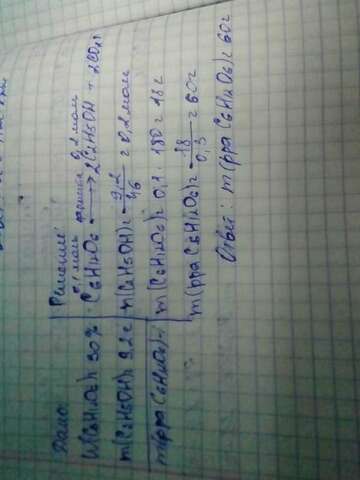 Дано:
W(C6H12O6)=30%
m(C2H5OH)=9,2г
m(рра C6H12O6)-?
Решение:
0,1 моль 0,2 моль
C6H12O6 → 2C2H5OH + 2CO2↑
n(C2H5OH)= 9,2/46 = 0,2 моль
m(C6H12O6)= 0,1 · 180 = 18г
m(рра C6H12O6)= 18/0,3 = 60г
Ответ: m(рра C6H12O6)= 60г